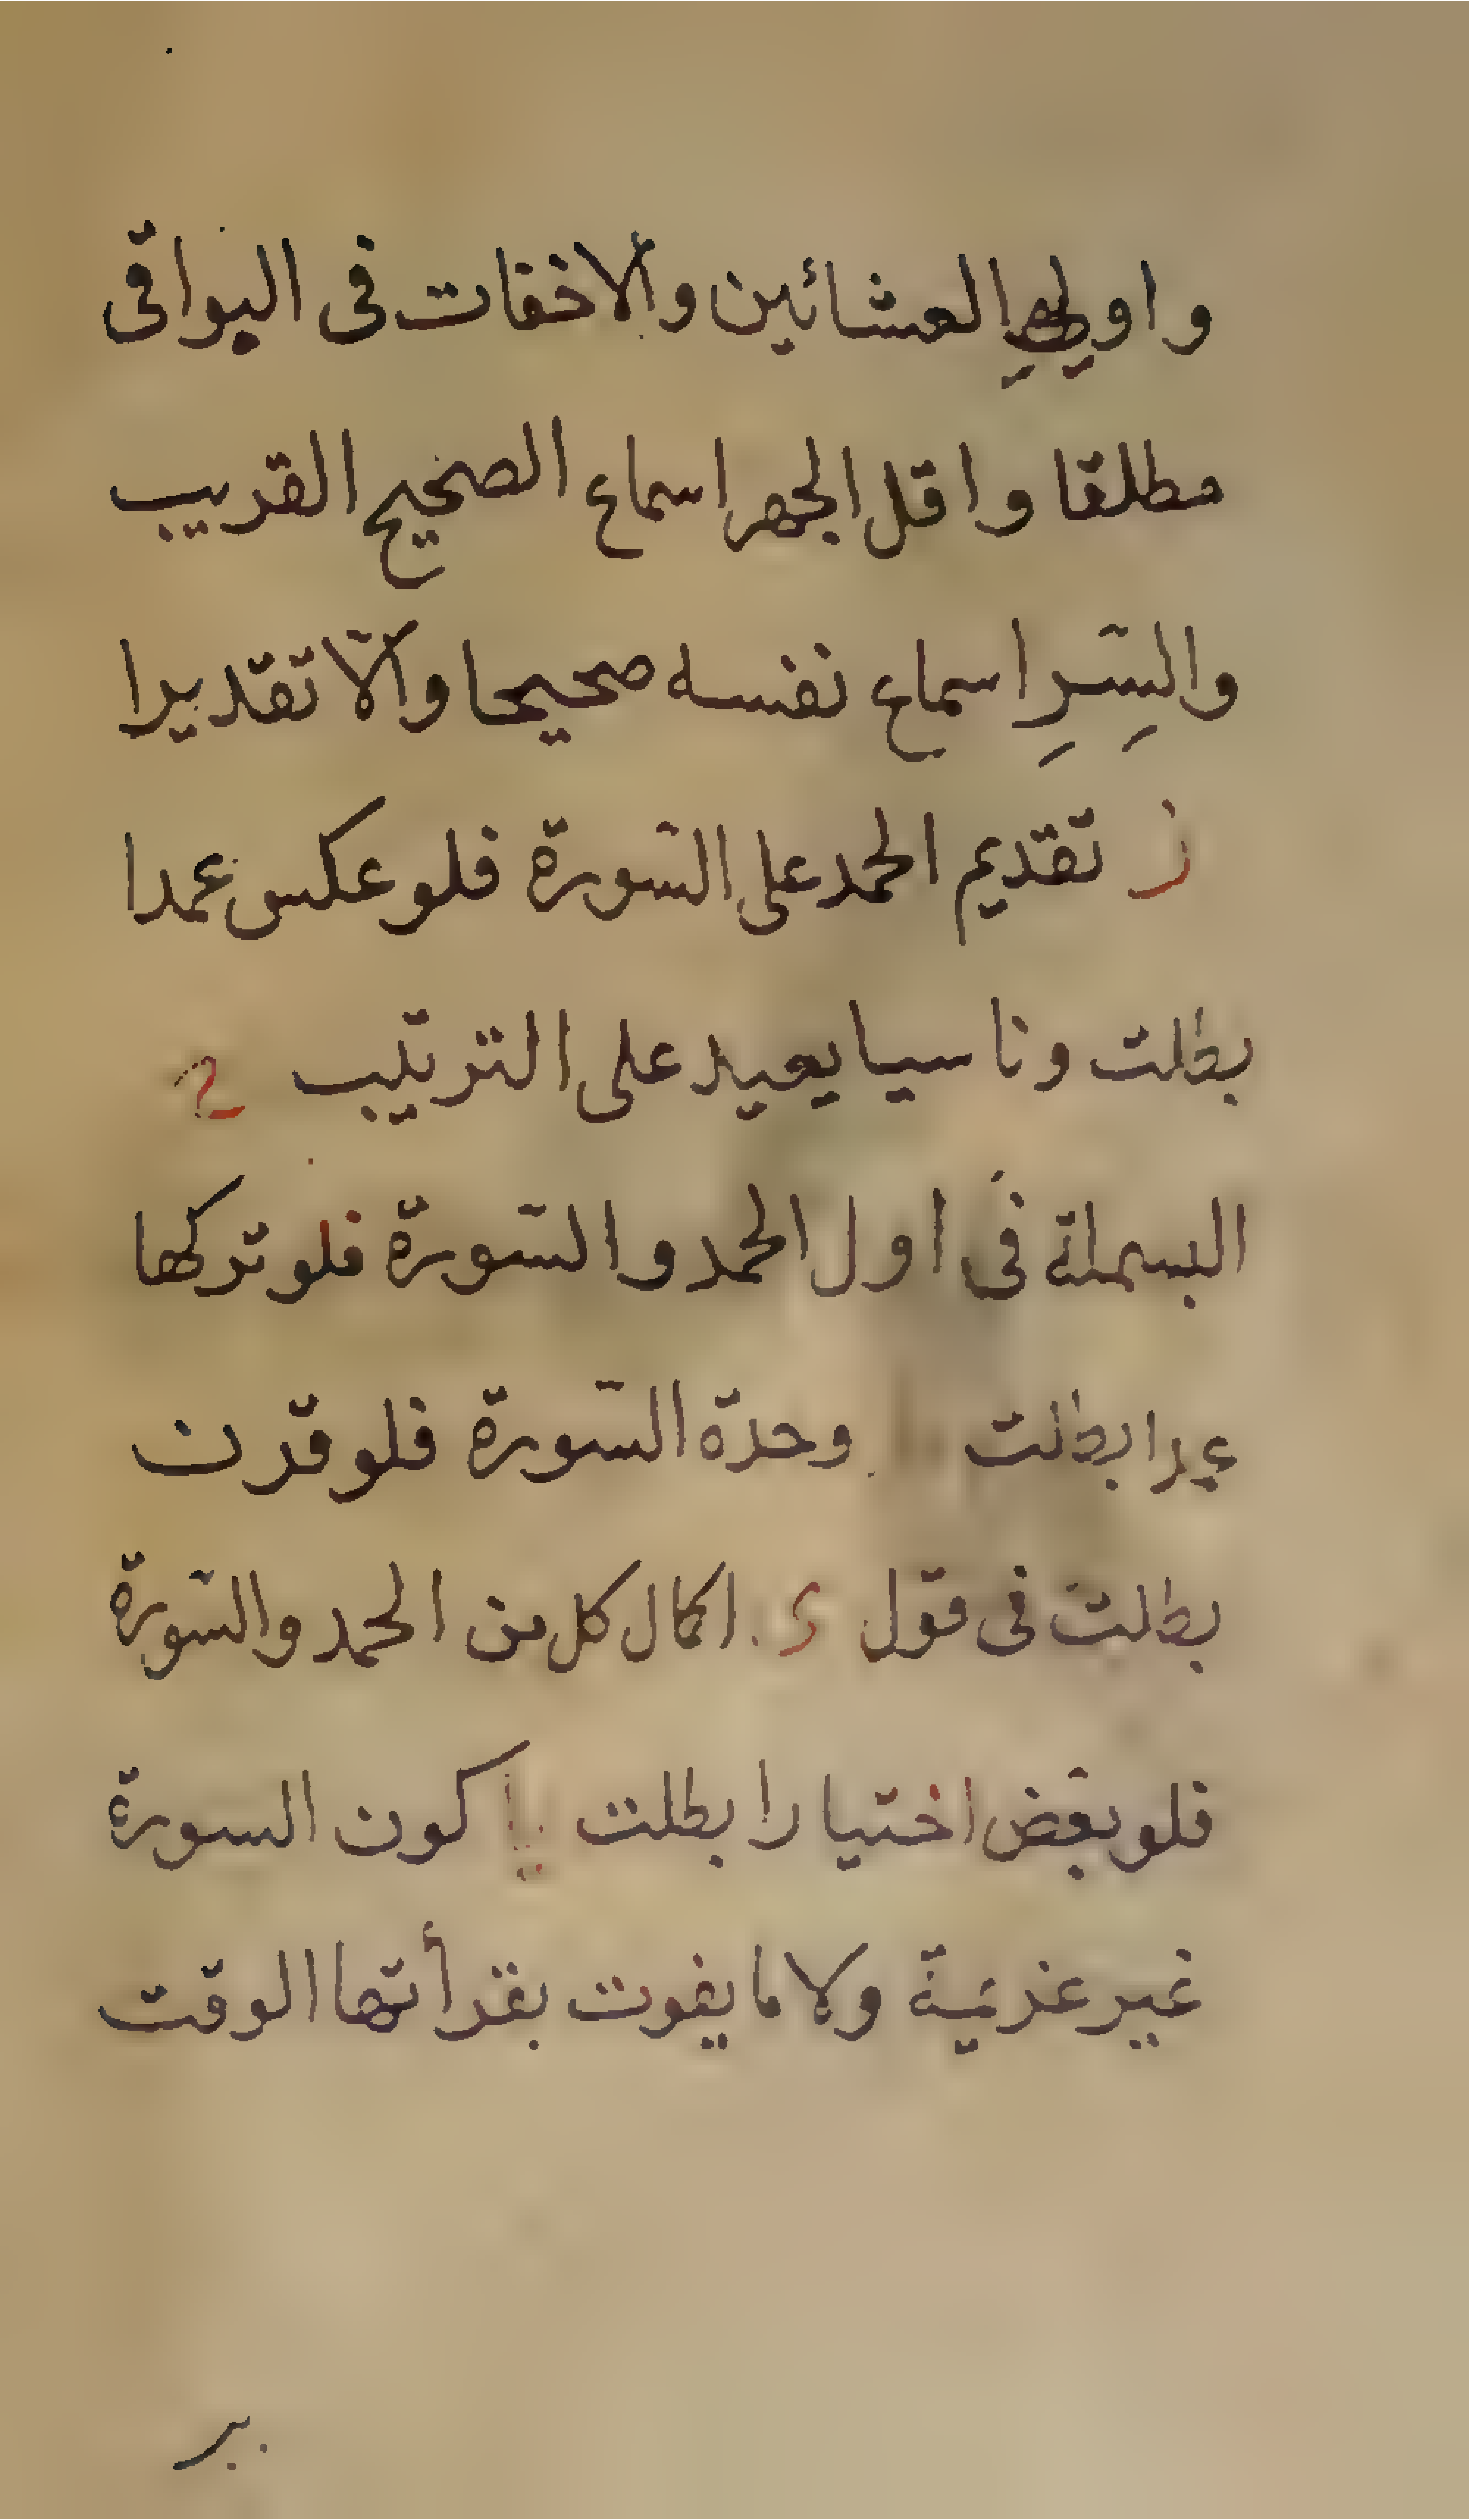 واوليي العشائين والاخفات فى البواقى
مطلقا واقل الجهر اسماع الصحيح القريب
والسِّرِ اسماع نفسه صحيحا والّا تقديرا
ز تقديم الحمد على السّورة فلو عكس عمدا
بطلت وناسيا يعيد على الترتيب ح
البسملة فى اول الحمد والسّورة فلو تركها
عمدا بطلت وحدة السّورة فلو قرن
بطلت فى قول ى اكمال كل من الحمد والسّورة
فلو بعّض اختيارا بطلت يا كون السورة
غير عزيمة ولا ما يفوت بقرأتها الوقت